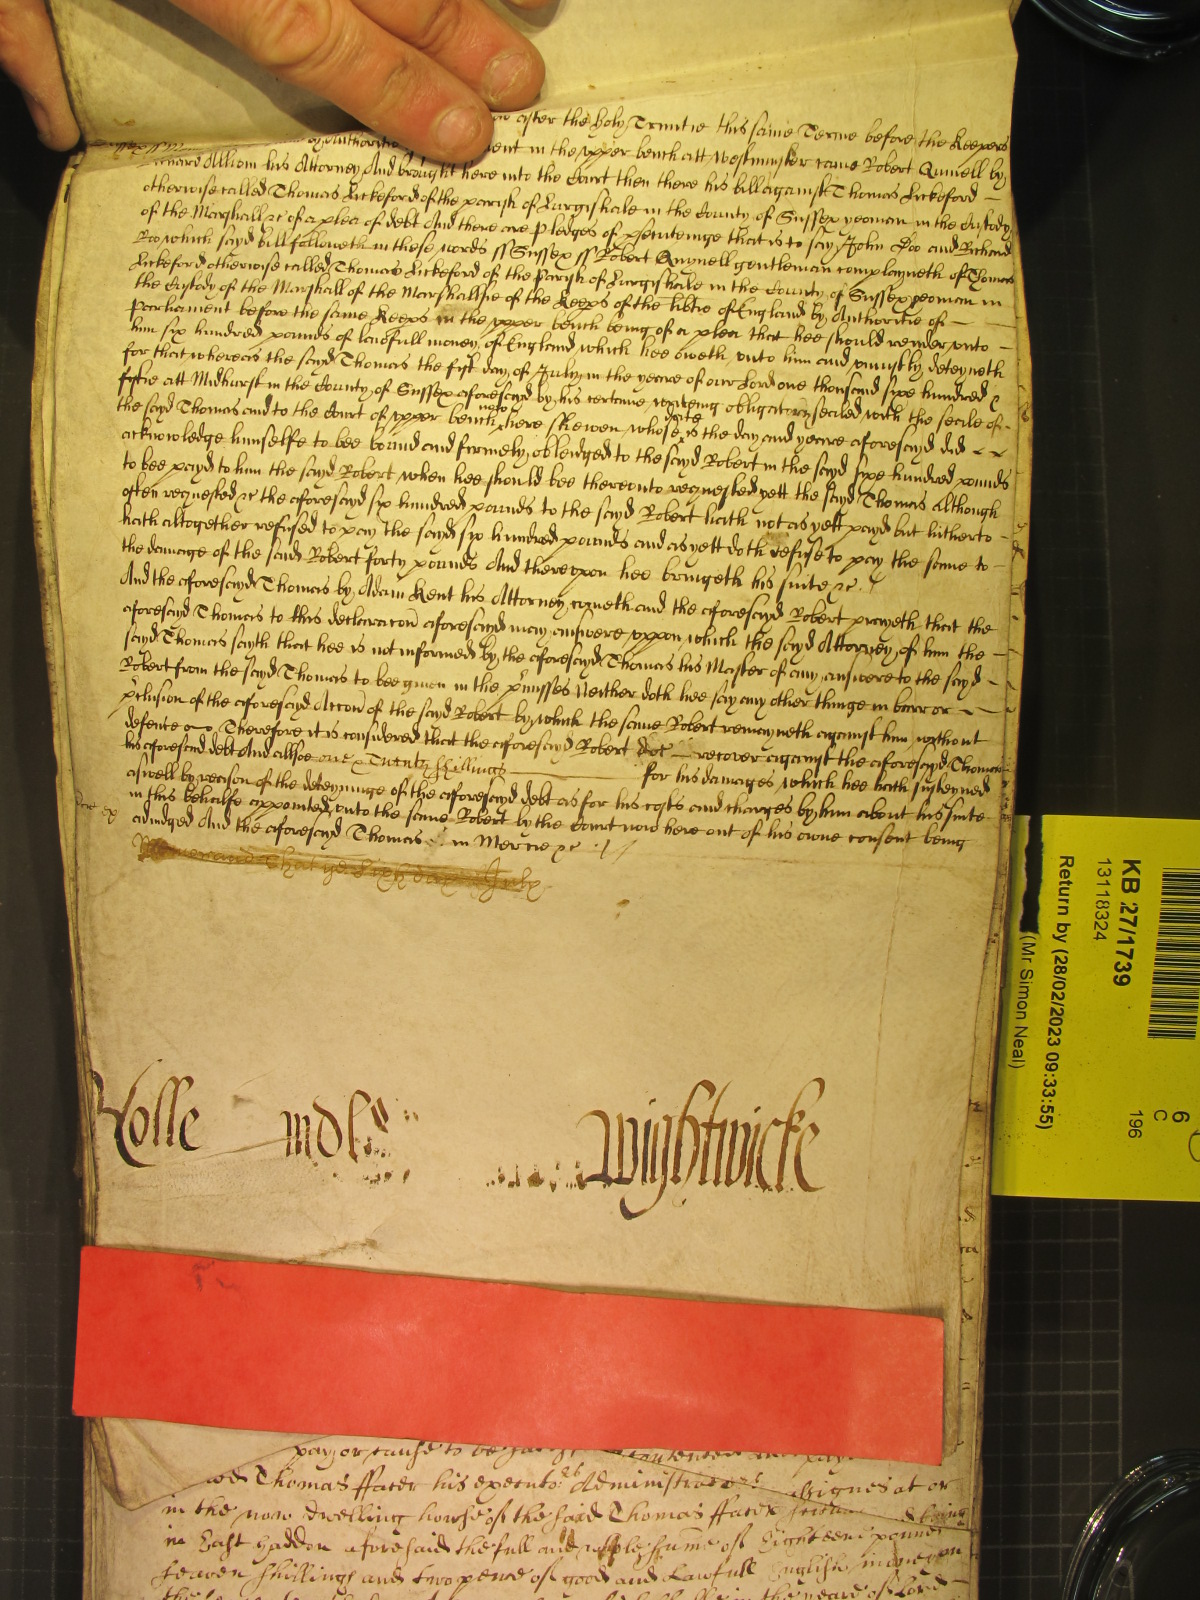 after the holy Trinitie this same Terme before the Keepers
by Authoritie ent in the upper bench att Westminster came Robert Quynell by
Alliom his Attorney And brought here into the Court then there his bill against Thomas Lickeford
otherwise called Thomas Lickeford of the parish of Lurgishale in the County of Sussex yeoman in the Custody
of the Marshall &c of a plea of debt And there are pledges of psecutinge that is to say John Doo and Richard
Roo which sayd bill followeth in these words ss Sussex ss Robert Quynell gentleman complayneth of Thomas
Lickeford otherwise called Thomas Lickeford of the parish of Lurgishale in the County of Sussex yeoman in
the Custody of the Marshall of the Marshallsie of the Keeps of the libtie of England by Authoritie of
Parliament before the same Keeps in the upper bench being of a plea that hee should render unto
him six hundred pounds of lawfull money of England which hee oweth unto him and uniustly deteyneth
for that whereas the sayd Thomas the first day of July in the yeare of our Lord one thousand sixe hundred &
fiftie att Midhurst in the County of Sussex aforesayd by his certaine writeing obligatory sealed with the seale of
the sayd Thomas and to the Court of upper bench now here shewen whose date is the day and yeare aforesayd did
acknowledge himselfe to bee bound and firmely obleidged to the sayd Robert in the sayd sixe hundred pounds
to bee payd to him the sayd Robert when hee should bee thereunto requested yett the sayd Thomas Although
often requested &c the aforesayd six hundred pounds to the sayd Robert hath not as yett payd but hitherto
hath altogether refused to pay the sayd six hundred pounds and as yett doth refuse to pay the same to
the damage of the said Robert forty pounds And thereupon hee bringeth his suite &c
And the aforesayd Thomas by Adam Kent his Attorney cometh and the aforesayd Robert prayeth that the
aforesayd Thomas to this declaracon aforesayd may answere uppon which the sayd Attorney of him the
sayd Thomas sayth that hee is not informed by the aforesayd Thomas his Master of any answere to the sayd
Robert from the sayd Thomas to bee given in the pmisses Neither doth hee say any other thinge in barr or
pclusion of the aforesayd Accon of the sayd Robert by which the same Robert remayneth against him without
defence Therefore it is considered that the aforesayd Robert doe recover against the aforesayd Thomas
his aforesaid debt And allsoe Twenty shillings for his damages which hee hath susteyned
aswell by reason of the deteyninge of the aforesayd debt as for his costs and charges by him about his suite
in this behalfe appointed unto the same Robert by the Court now here out of his owne consent being
adiudged And the aforesayd Thomas in Mercie &c
Memorand That ye sixth day July
Rolle mdl Wightwicke
KB 27/1739
13118324
Return by (28/02/2023 09:33:55)
(Mr Simon Neal)
6
C
196
pay or cause to be
Thomas ffacer his executors Administrators assignes at or
in the now dwelling howse of the said Thomas ffacer
in East Haddon aforesaid the full and whole summe of Eighteen pounds
seaven shillings and two pence of good and Lawfull English money
in the yeare of Lord